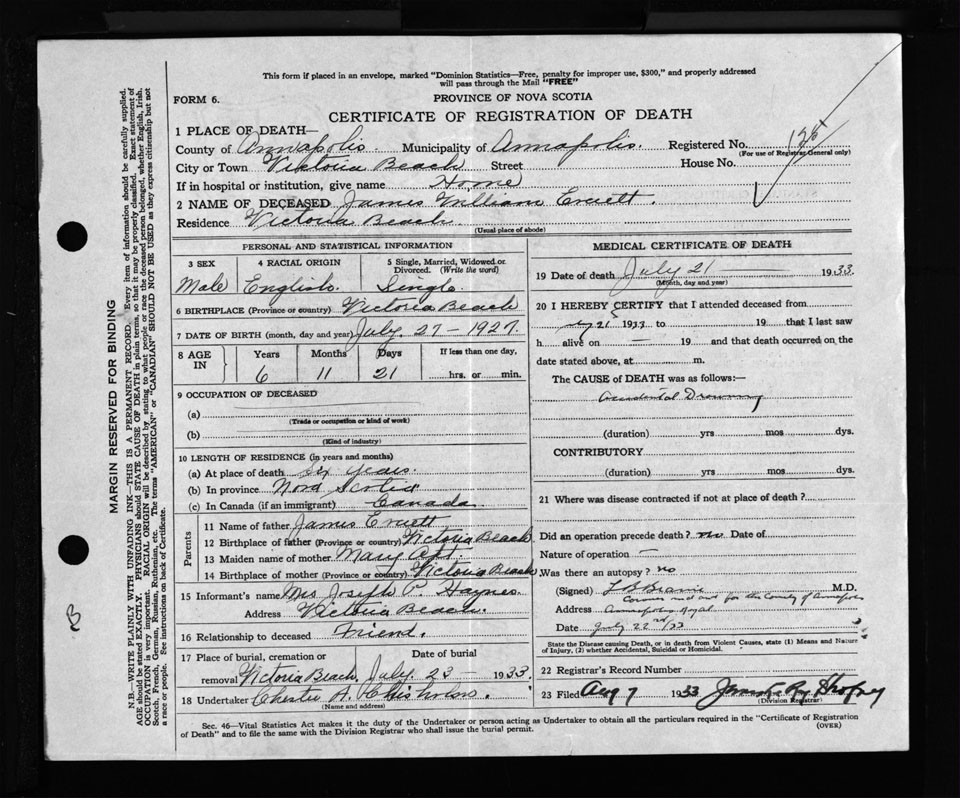 This form if placed in an envelope, marked "Dominion Statistics—Free, penalty for improper use, $300," and properly addressed
will pass through the Mail "FREE"
FORM 6.
PROVINCE OF NOVA SCOTIA
CERTIFICATE OF REGISTRATION OF DEATH
1 PLACE OF DEATH—
County of Annapolis Municipality of Annapolis. Registered No.
(For use of Registrar General only)
City or Town Victoria Beach Street House No.
If in hospital or institution, give name Home
2 NAME OF DECEASED James William Everett.
Residence Victoria Beach.
(Usual place of abode)
PERSONAL AND STATISTICAL INFORMATION
3 SEX 4 RACIAL ORIGIN 5 Single, Married, Widowed or Divorced. (Write the word)
Male English. Single
6 BIRTHPLACE (Province or country) Victoria Beach
7 DATE OF BIRTH (month, day and year) July. 27 - 1927.
8 AGE IN Years Months Days If less than one day,
6 11 21 hrs. or min.
9 OCCUPATION OF DECEASED
(a)
(Trade or occupation or kind of work)
(b)
(Kind of industry)
10 LENGTH OF RESIDENCE (in years and months)
(a) At place of death six years.
(b) In province Nova Scotia
(c) In Canada (if an immigrant) Canada.
Parents
11 Name of father James Everett
12 Birthplace of father (Province or country) Victoria Beach
13 Maiden name of mother Mary
14 Birthplace of mother (Province or country) Victoria Beach.
15 Informant's name Mrs Joseph P. Haynes
Address Victoria Beach.
16 Relationship to deceased Friend.
17 Place of burial, cremation or removal Date of burial
Victoria Beach, July. 23 - 1933.
18 Undertaker Chester A. Chisholm.
(Name and address)
MEDICAL CERTIFICATE OF DEATH
19 Date of death July 21 1933
(Month, day and year)
20 I HEREBY CERTIFY that I attended deceased from
July 21 1933 to 19 that I last saw
h alive on — 19 and that death occurred on the
date stated above, at m.
The CAUSE OF DEATH was as follows:—
Accidental Drowning
(duration) yrs mos dys.
CONTRIBUTORY
(duration) yrs mos dys.
21 Where was disease contracted if not at place of death?
Did an operation precede death? no Date of
Nature of operation —
Was there an autopsy? no
(Signed) M.D.
Coroner for the County of Annapolis
Address Annapolis Royal
Date July 22nd/33
State the Disease Causing Death, or in death from Violent Causes, state (1) Means and Nature
of Injury, (2) whether Accidental, Suicidal or Homicidal.
22 Registrar's Record Number
23 Filed Aug 7 1933
(Division Registrar)
Sec. 46—Vital Statistics Act makes it the duty of the Undertaker or person acting as Undertaker to obtain all the particulars required in the "Certificate of Registration
of Death" and to file the same with the Division Registrar who shall issue the burial permit. (OVER)
MARGIN RESERVED FOR BINDING
N.B.—WRITE PLAINLY WITH UNFADING INK—THIS IS A PERMANENT RECORD. Every item of information should be carefully supplied.
AGE should be stated EXACTLY. PHYSICIANS should STATE CAUSE OF DEATH in plain terms, so that it may be properly classified. Exact statement of
OCCUPATION is very important. RACIAL ORIGIN will be described by stating to what people or race the deceased person belonged, whether English, Irish,
Scotch, French, German, Russian, Ruthenian, etc. The terms "AMERICAN" or "CANADIAN" SHOULD NOT BE USED as they express citizenship but not
a race or people. See instructions on back of Certificate.